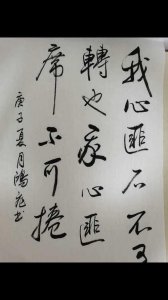 我心匪石不可
轉也我心匪
席不可捲
庚子夏月鴻庭书